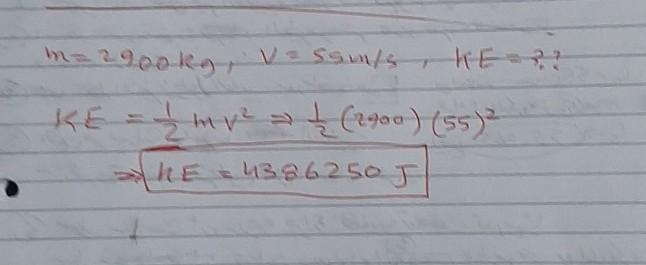 m = 2900 kg, V = 55 m/s, KE = ??
KE = 1/2 m v² ⇒ 1/2 (2900) (55)²
⇒ KE = 4386250 J